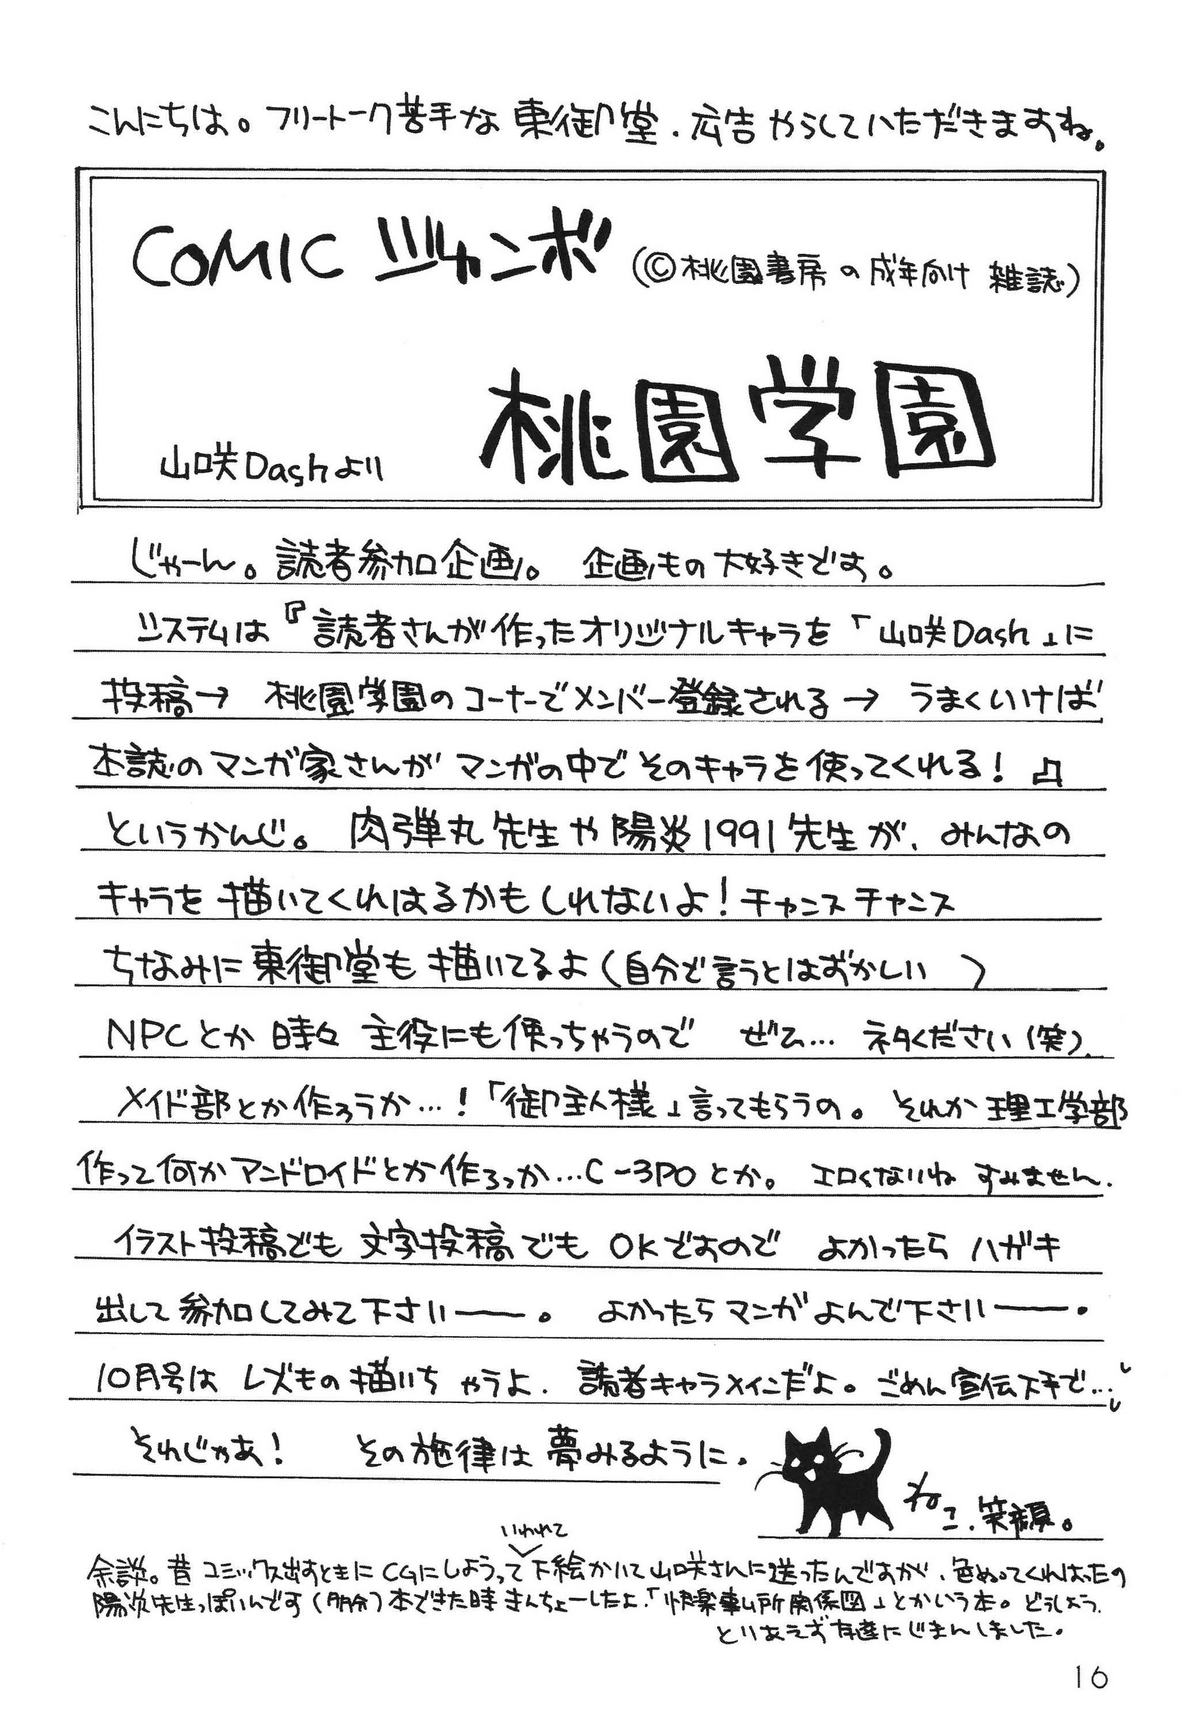 こんにちは。フリートーク苦手な 東御堂、広告やらしていただきますね。
COMIC ジャンボ (©桃園書房の成年向け 雑誌)
桃園学園
山咲Dashより
じゃーん。読者参加企画。 企画もの大好きです。
システムは『読者さんが作ったオリジナルキャラを「山咲Dash」に
投稿→ 桃園学園のコーナーでメンバー登録される→ うまくいけば
本誌のマンガ家さんが マンガの中で そのキャラを使ってくれる! 』
というかんじ。 肉弾丸先生や陽炎1991先生が、みんなの
キャラを 描いてくれはるかもしれないよ!チャンスチャンス
ちなみに東御堂も 描いてるよ(自分で言うとはずかしい )
NPCとか 時々 主役にも使っちゃうので ぜひ… ネタください(笑).
メイド部とか作ろうか…!「御主人様」言ってもらうの。 それか 理工学部
作って何かアンドロイドとか作ろっか…C-3POとか。 エロくないね すみません.
イラスト投稿でも 文字投稿でも OKですので よかったら ハガキ
出して参加してみて下さい——。 よかったらマンガよんで下さい——.
10月号は レズもの描いちゃうよ. 読者キャラメインだよ。ごめん宣伝下手で…
それじゃあ! その施律は 夢みるように.
ねこ、笑顔。
余談。昔 コミックス出すときに CGにしようっていわれて下絵かいて山咲さんに送ったんですが、色ぬってくれはったの
陽炎先生っぽいんです(多分)本できた時きんちょーしたよ.「快楽事ム所関係図」とかいう本。どうしよう.
とりあえず友達にじまんしました.
16